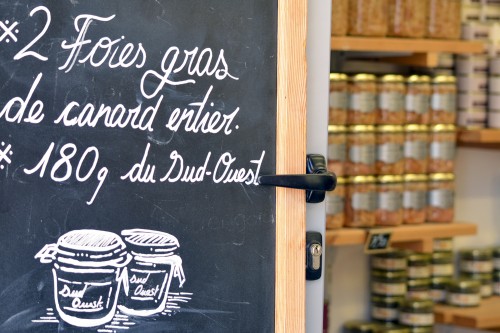 * 2 Foies gras
de canard entier.
* 180g du Sud-Ouest
Sud
Ouest
Sud
Ouest